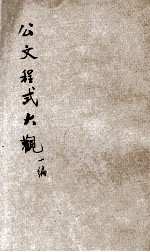 公文程式大觀一編